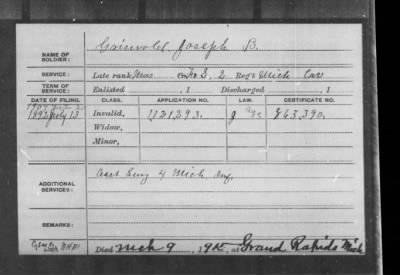 NAME OF SOLDIER: Griswold, Joseph B.
SERVICE: Late rank F & S, 2 Reg't Mich Cav
TERM OF SERVICE: Enlisted , 1 Discharged , 1
DATE OF FILING. CLASS. APPLICATION NO. LAW. CERTIFICATE NO.
1892 July 13 Invalid, 1121293. 863,390.
Widow,
Minor,
ADDITIONAL SERVICES: Asst Surg 4 Mich Inf.
REMARKS:
Died Mch 9, 1915, at Grand Rapids Mich